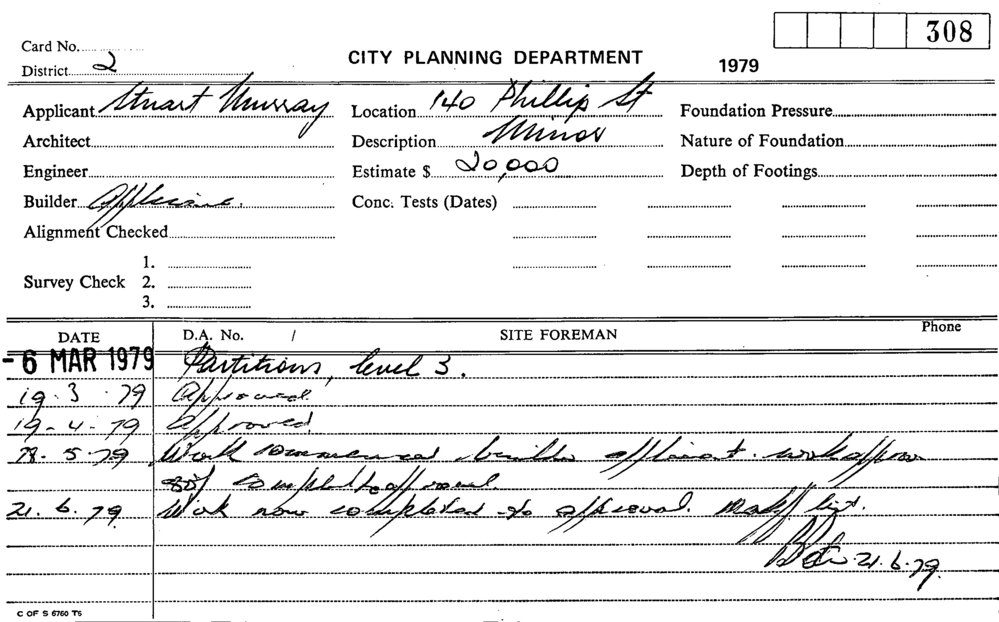 308
Card No.
CITY PLANNING DEPARTMENT
1979
District 2
Applicant Stuart Murray
Location 140 Phillip St
Foundation Pressure
Architect
Description Minor
Nature of Foundation
Engineer
Estimate $ 20,000
Depth of Footings
Builder Applicant.
Conc. Tests (Dates)
Alignment Checked
Survey Check
1.
2.
3.
DATE
D.A. No. /
SITE FOREMAN
Phone
-6 MAR 1979 Partitions, level 3.
19.3.79 Approved.
19-4-79 Approved.
5.79 Work commenced builder applicant. work approx
80% complete to approval.
21.6.79 Work now completed to approval. list.
21.6.79.
C OF S 6760 T5